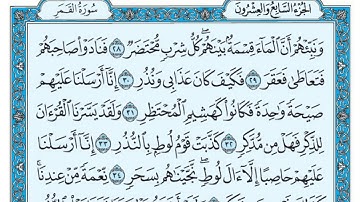 سُورَةُ القَمَر الجُزْءُ السَّابِعُ وَالعِشْرُونَ
وَنَبِّئْهُمْ أَنَّ ٱلْمَآءَ قِسْمَةٌۢ بَيْنَهُمْ كُلُّ شِرْبٍ مُّحْتَضَرٌ ٢٨ فَنَادَوْا۟ صَاحِبَهُمْ
فَتَعَاطَىٰ فَعَقَرَ ٢٩ فَكَيْفَ كَانَ عَذَابِى وَنُذُرِ ٣٠ إِنَّآ أَرْسَلْنَا عَلَيْهِمْ
صَيْحَةً وَٰحِدَةً فَكَانُوا۟ كَهَشِيمِ ٱلْمُحْتَظِرِ ٣١ وَلَقَدْ يَسَّرْنَا ٱلْقُرْءَانَ
لِلذِّكْرِ فَهَلْ مِن مُّدَّكِرٍ ٣٢ كَذَّبَتْ قَوْمُ لُوطٍۭ بِٱلنُّذُرِ ٣٣ إِنَّآ أَرْسَلْنَا
عَلَيْهِمْ حَاصِبًا إِلَّآ ءَالَ لُوطٍ نَّجَّيْنَٰهُم بِسَحَرٍ ٣٤ نِّعْمَةً مِّنْ عِندِنَا